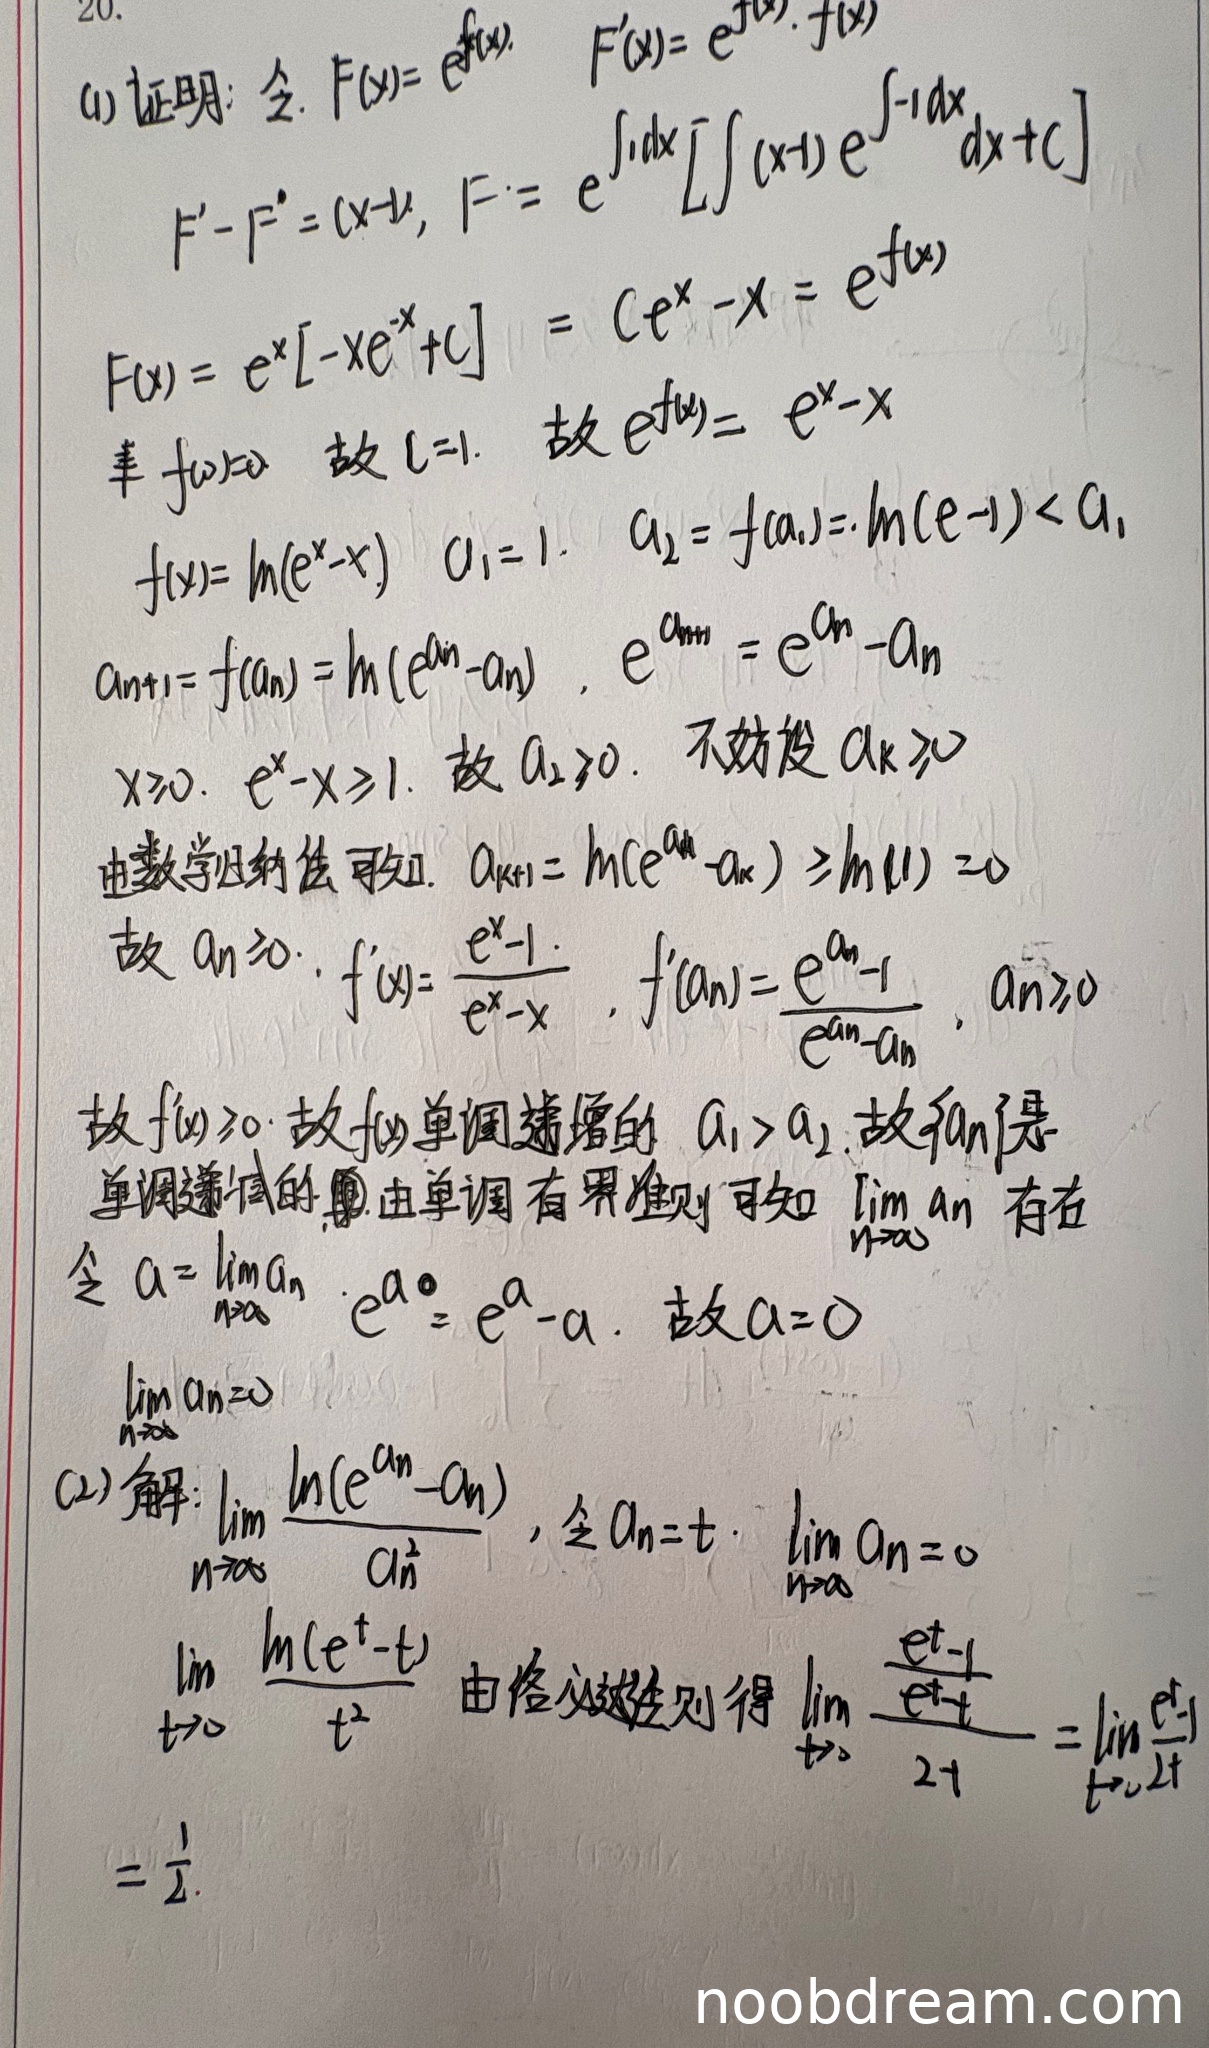 20.
(1) 证明: 令. F(x)= e^{f(x)}. F'(x)= e^{f(x)}·f'(x)
F'-F=(x-1), F = e^{∫1dx}[∫(x-1)e^{∫-1dx}dx+C]
F(x) = e^x[-xe^{-x}+C] = Ce^x-x = e^{f(x)}
f(0)=0 故C=1. 故e^{f(x)}= e^x-x
f(x)=ln(e^x-x) a_1=1. a_2=f(a_1)=ln(e-1)<a_1
a_{n+1}=f(a_n)=ln(e^{a_n}-a_n), e^{a_{n+1}}=e^{a_n}-a_n
x≥0. e^x-x≥1. 故a_2≥0. 不妨设a_k≥0
由数学归纳法可知. a_{k+1}=ln(e^{a_k}-a_k)≥ln(1)=0
故a_n≥0., f'(x)=\frac{e^x-1}{e^x-x}, f'(a_n)=\frac{e^{a_n}-1}{e^{a_n}-a_n}, a_n≥0
故f'(x)≥0.故f(x)单调递增的 a_1>a_2.故{a_n}是
单调递减的.由单调有界准则可知 \lim_{n→∞}a_n 存在
令a=\lim_{n→∞}a_n . e^a=e^a-a. 故a=0
\lim_{n→∞}a_n=0
(2)解: \lim_{n→∞}\frac{ln(e^{a_n}-a_n)}{a_n^2}, 令a_n=t. \lim_{n→∞}a_n=0
\lim_{t→0}\frac{ln(e^t-t)}{t^2} 由洛必达法则得 \lim_{t→0}\frac{\frac{e^t-1}{e^t-t}}{2t}=\lim_{t→0}\frac{e^t-1}{2t}
=\frac{1}{2}.
noobdream.com